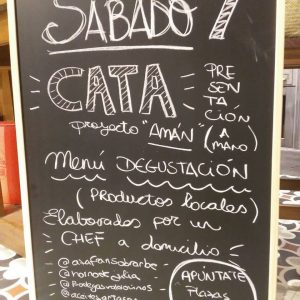 SÁBADO 7
CATA
PRE
SEN
TA
CIÓN
proyecto "AMAN" (A MANO)
Menú DEGUSTACIÓN
(Productos locales)
Elaborados por un
CHEF a domicilio
APÚNTATE
Plazas